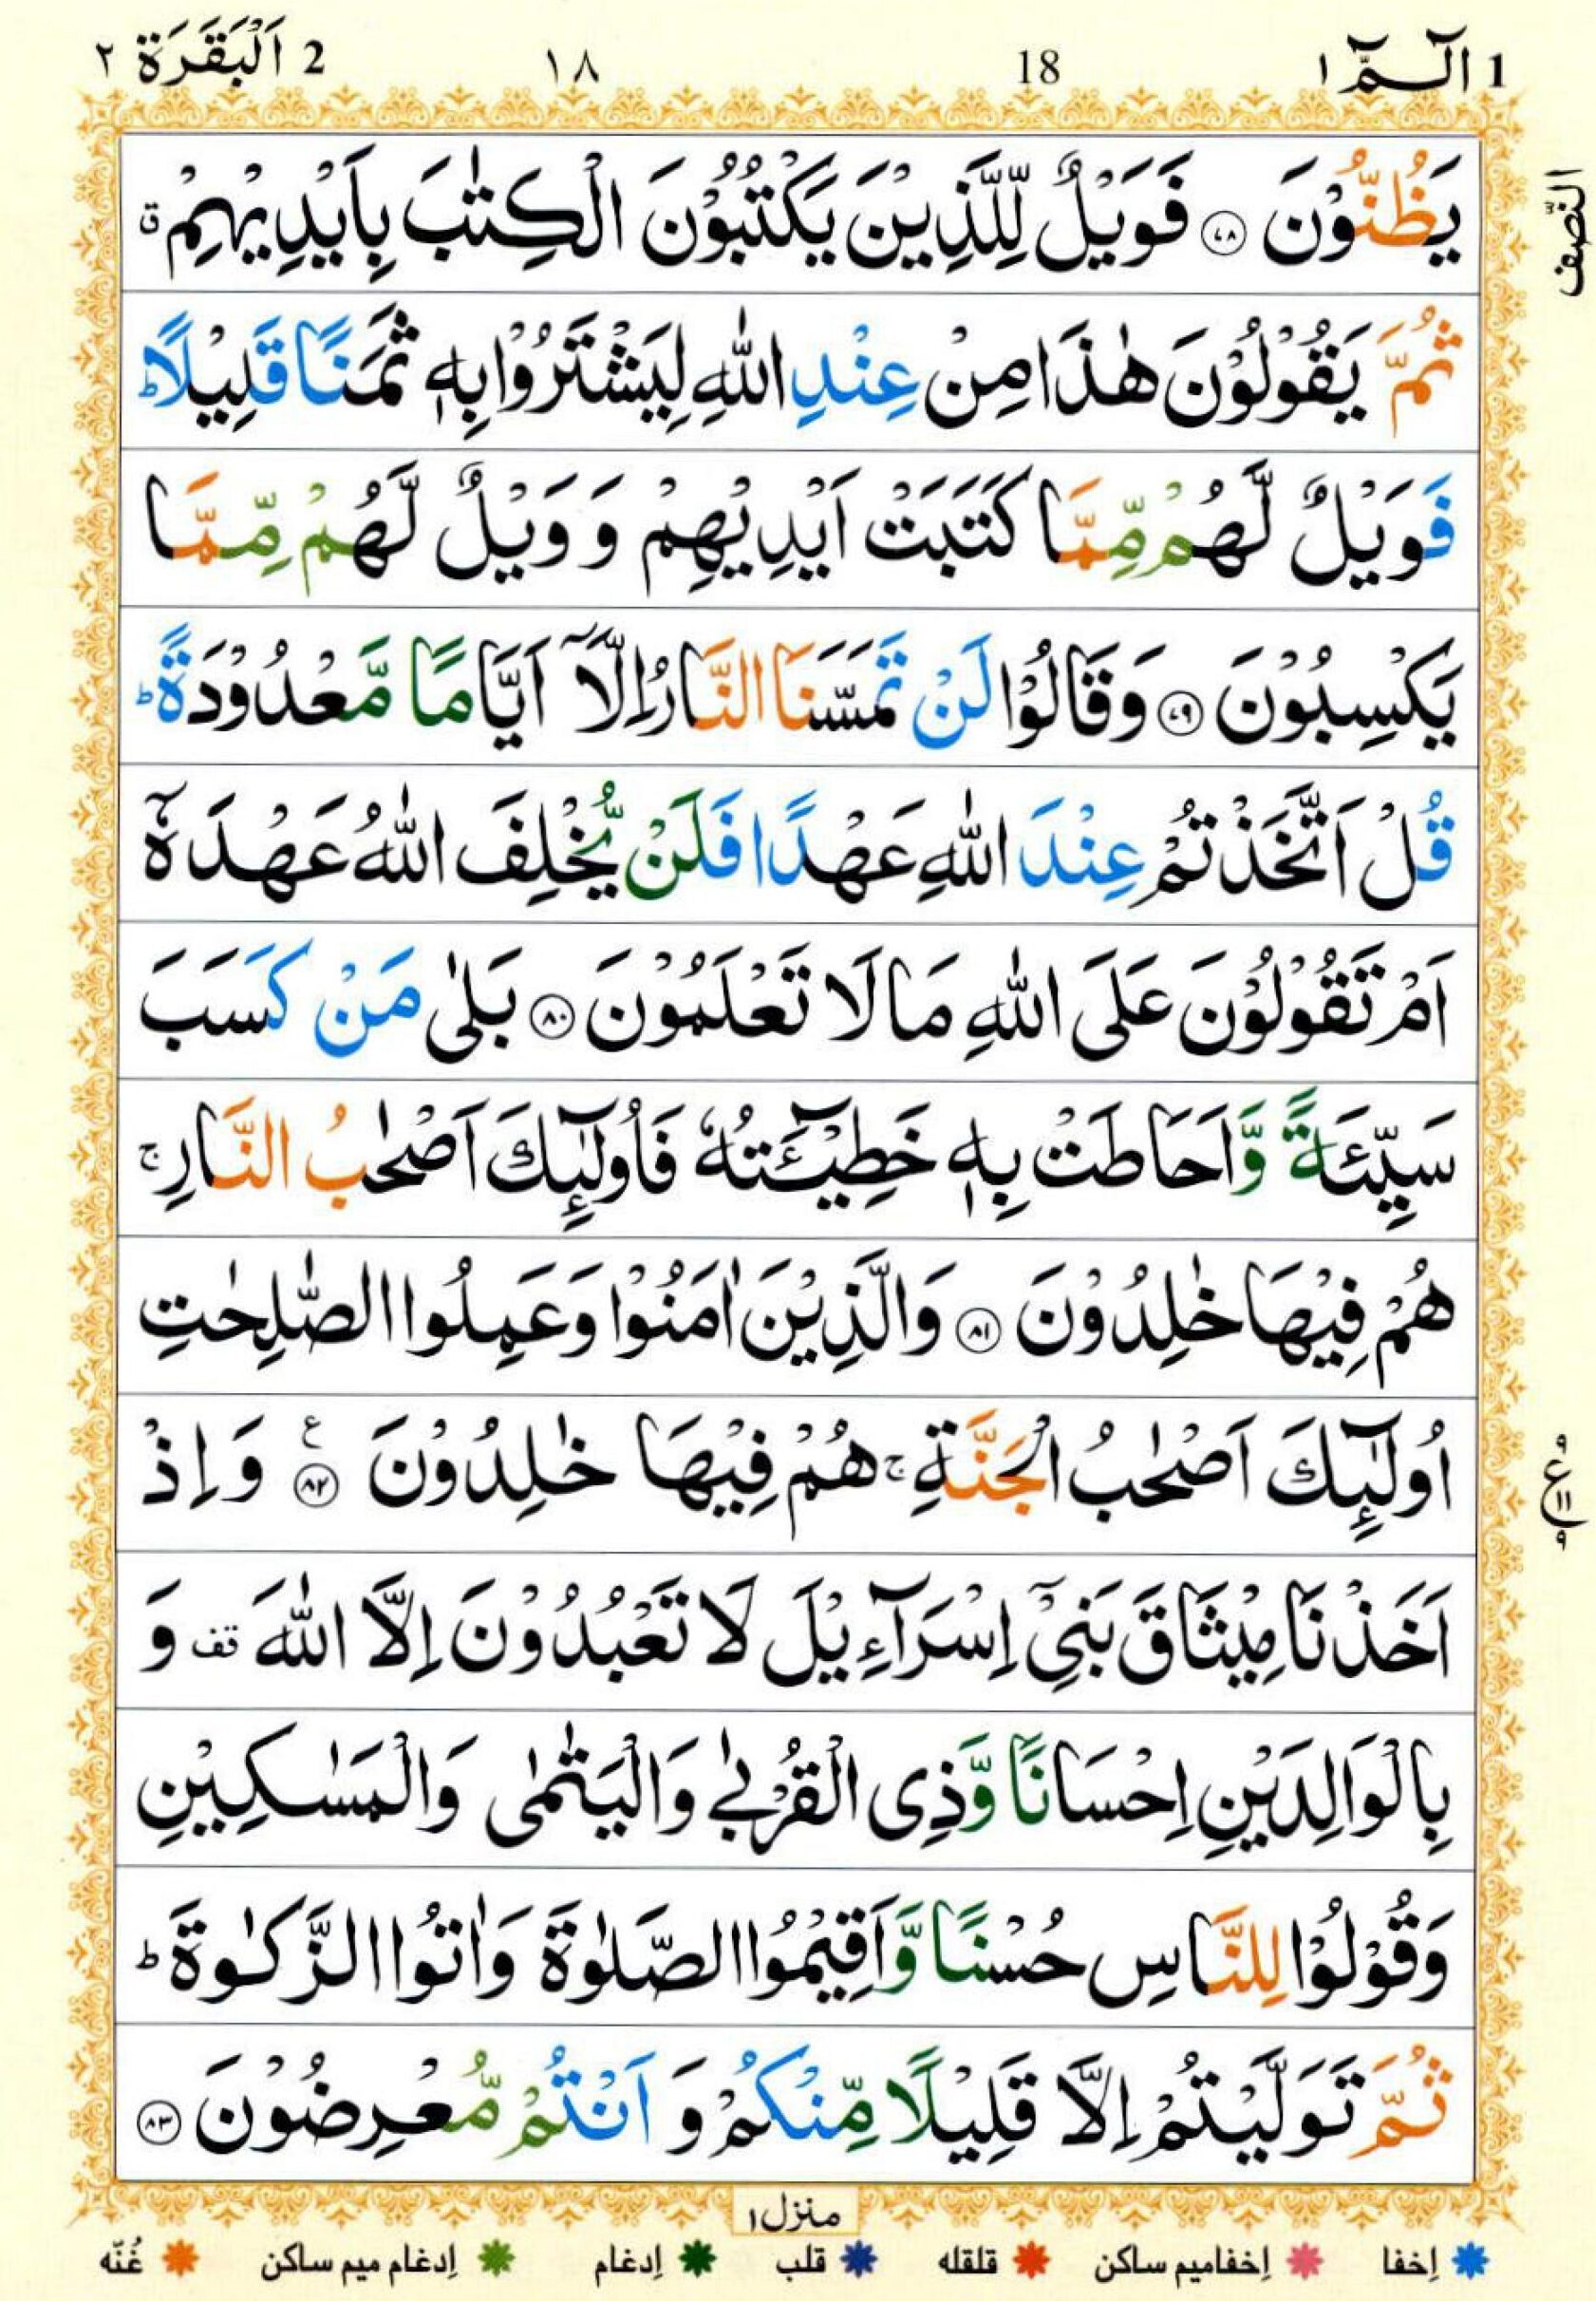 1 الٓـمّٓ ١ 18 ١٨ 2 اَلْبَقَرَة ٢
النّصف
يَظُنُّوْنَ ﴿٧٨﴾ فَوَيْلٌ لِّلَّذِيْنَ يَكْتُبُوْنَ الْكِتٰبَ بِاَيْدِيْهِمْ ۛق
ثُمَّ يَقُوْلُوْنَ هٰذَا مِنْ عِنْدِ اللّٰهِ لِيَشْتَرُوْا بِهٖ ثَمَنًا قَلِيْلًا ؕ
فَوَيْلٌ لَّهُمْ مِّمَّا كَتَبَتْ اَيْدِيْهِمْ وَ وَيْلٌ لَّهُمْ مِّمَّا
يَكْسِبُوْنَ ﴿٧٩﴾ وَقَالُوْا لَنْ تَمَسَّنَا النَّارُ اِلَّاۤ اَيَّامًا مَّعْدُوْدَةً ؕ
قُلْ اَتَّخَذْتُمْ عِنْدَ اللّٰهِ عَهْدًا فَلَنْ يُّخْلِفَ اللّٰهُ عَهْدَهٗۤ
اَمْ تَقُوْلُوْنَ عَلَى اللّٰهِ مَا لَا تَعْلَمُوْنَ ﴿٨٠﴾ بَلٰى مَنْ كَسَبَ
سَيِّئَةً وَّاَحَاطَتْ بِهٖ خَطِيْٓـَٔتُهٗ فَاُولٰٓئِكَ اَصْحٰبُ النَّارِ ۚ
هُمْ فِيْهَا خٰلِدُوْنَ ﴿٨١﴾ وَالَّذِيْنَ اٰمَنُوْا وَعَمِلُوا الصّٰلِحٰتِ
اُولٰٓئِكَ اَصْحٰبُ الْجَنَّةِ ۚ هُمْ فِيْهَا خٰلِدُوْنَ ﴿٨٢﴾ ع وَاِذْ
ع
اَخَذْنَا مِيْثَاقَ بَنِيْۤ اِسْرَآءِيْلَ لَا تَعْبُدُوْنَ اِلَّا اللّٰهَ قف وَ
بِالْوَالِدَيْنِ اِحْسَانًا وَّذِى الْقُرْبٰى وَالْيَتٰمٰى وَالْمَسٰكِيْنِ
وَقُوْلُوْا لِلنَّاسِ حُسْنًا وَّاَقِيْمُوا الصَّلٰوةَ وَاٰتُوا الزَّكٰوةَ ؕ
ثُمَّ تَوَلَّيْتُمْ اِلَّا قَلِيْلًا مِّنْكُمْ وَ اَنْتُمْ مُّعْرِضُوْنَ ﴿٨٣﴾
منزل ١
إخفا إخفاميم ساكن قلقله قلب إدغام إدغام ميم ساكن غُنّه